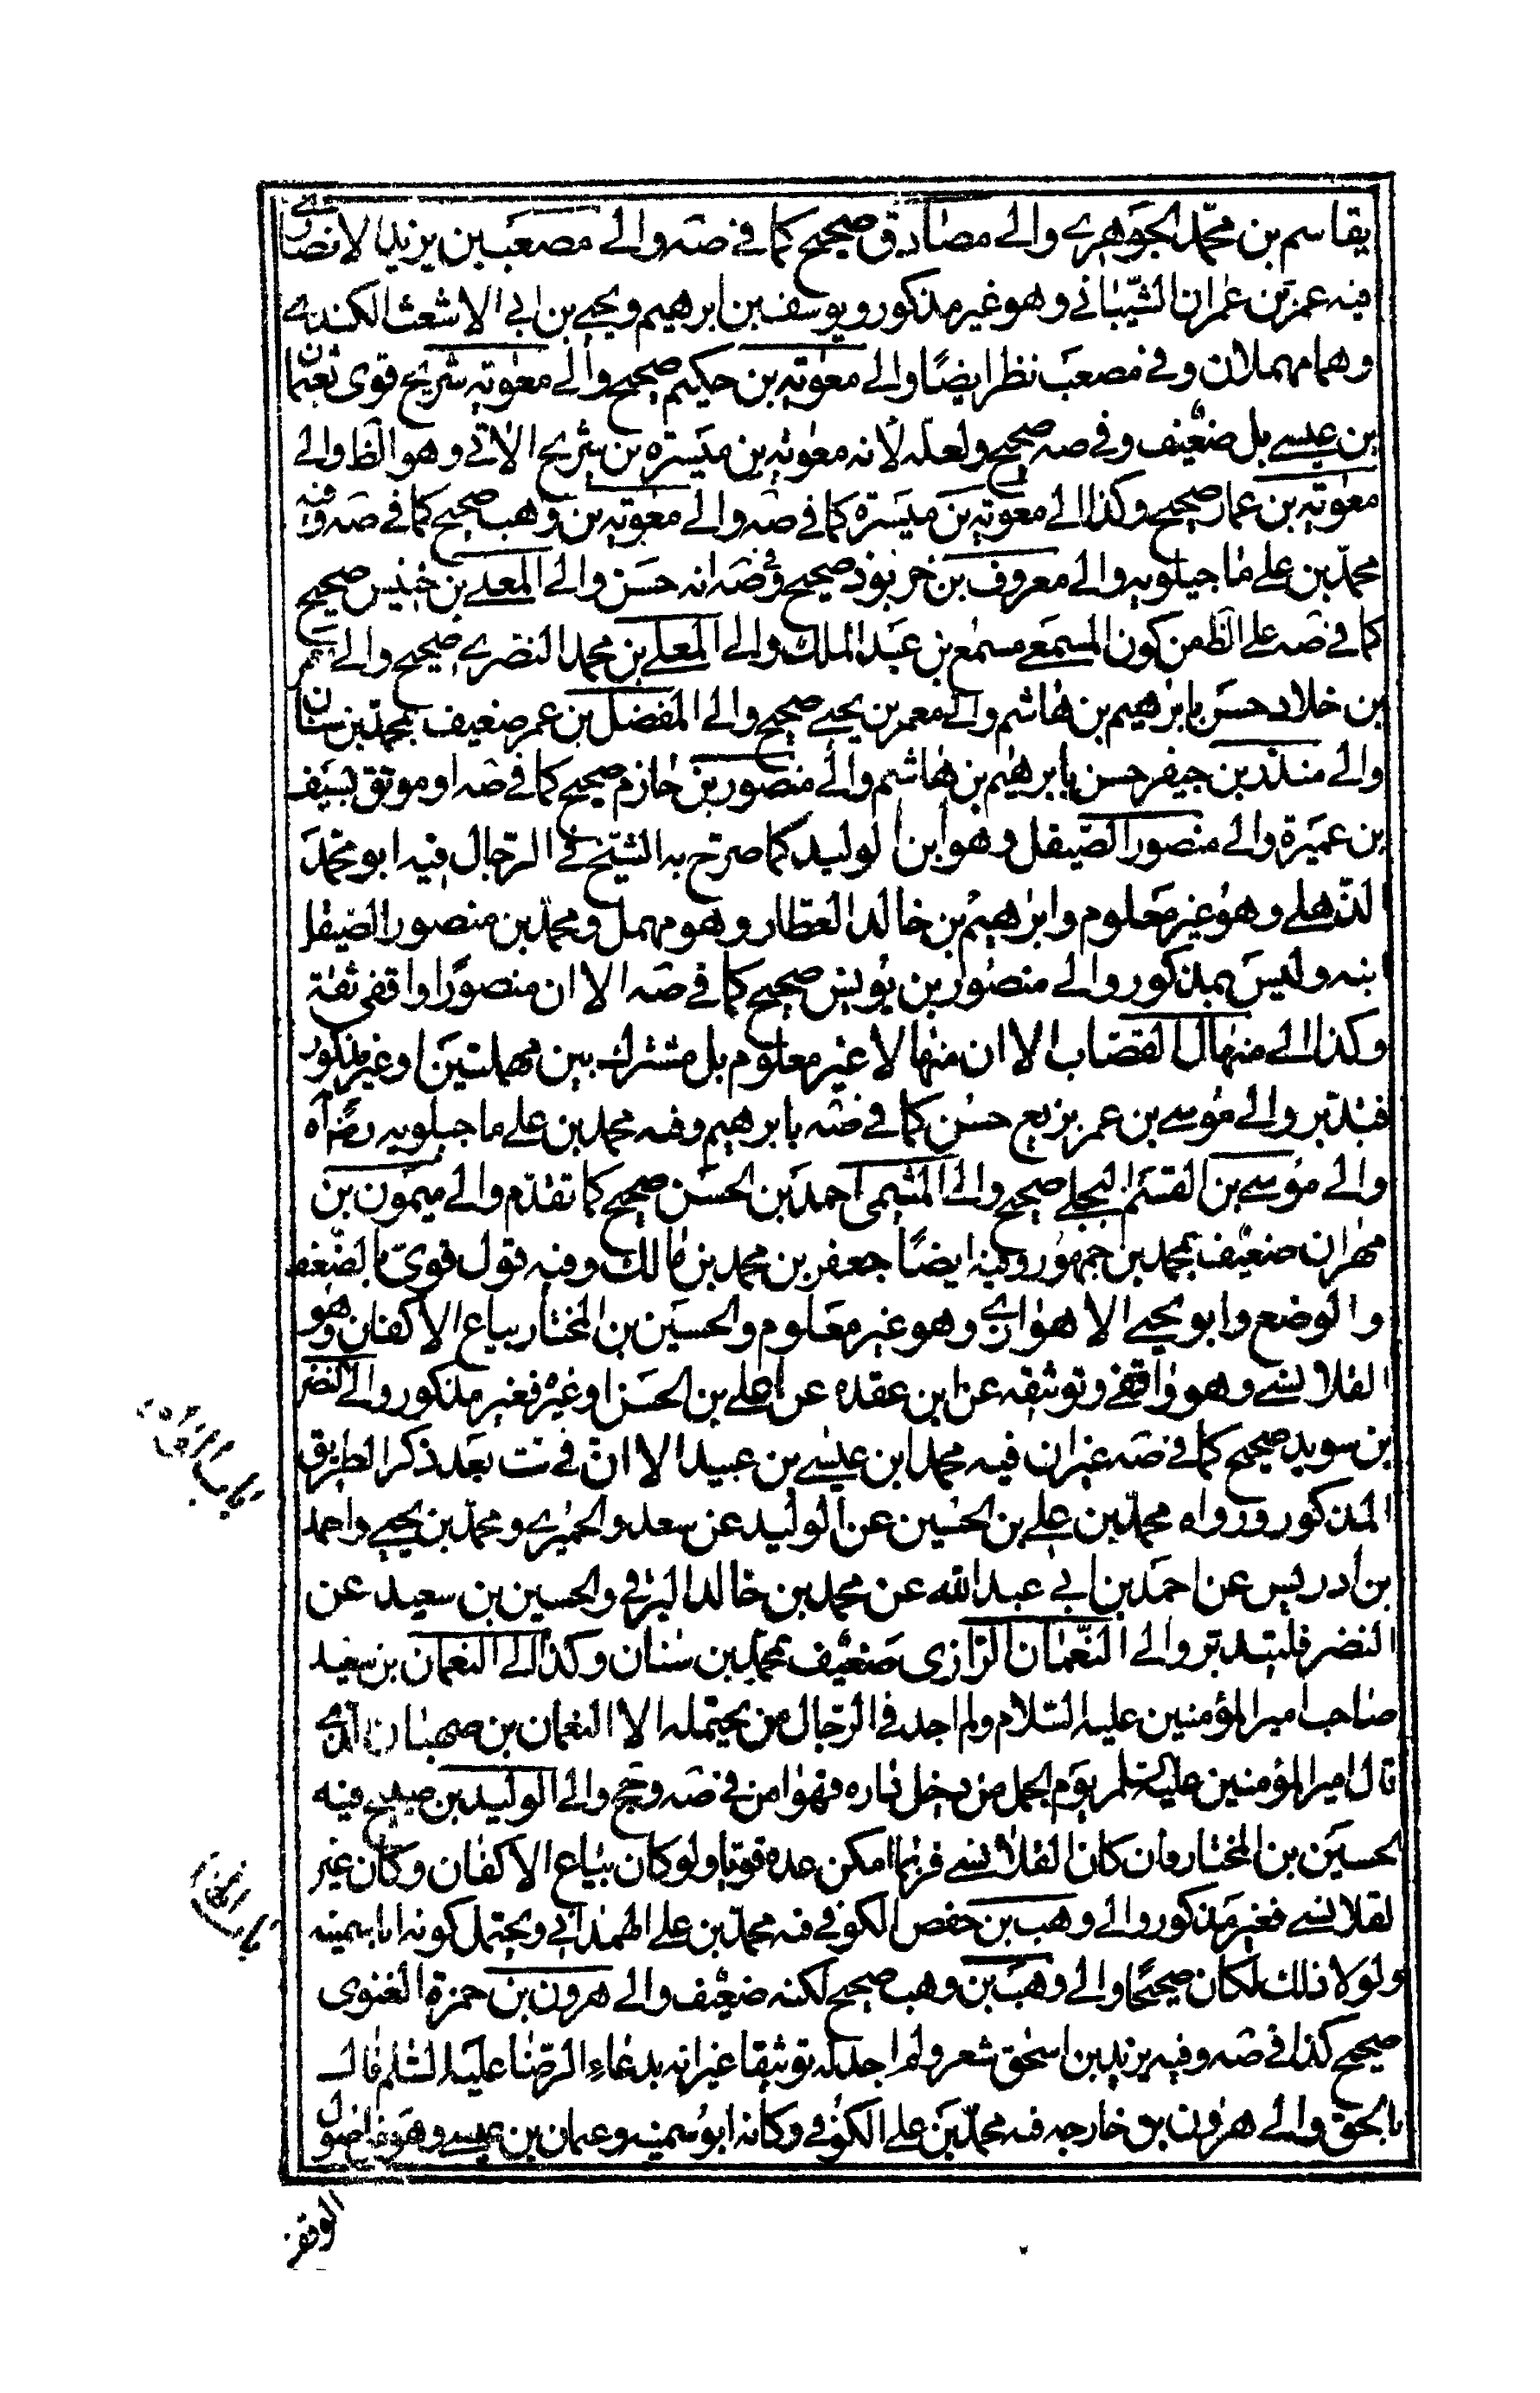 بقاسم بن محمد الجوهرے والے مصادق صحيح كما فے صه والے مصعب بن يزيد الانصارے
فيه عمر بن عمران الشيبانے وهو غير مذكور ويوسف بن ابرهيم ويحيے بن ابي الاشعث الكندے
وهما مهملان وفے مصعب نظر ايضًا والے معوية بن حكيم صحيح والے معوية شريح قوى بعثمان
بن عيسے بل ضعيف وفے صه صحيح ولعله لانه معوية بن ميسرة بن شريح الاتے وهو الظ والے
معوية بن عمار صحيح وكذا الے معوية بن ميسرة كما فے صه والے معوية بن وهب صحيح كما فے صه وفيه
محمد بن علے ماجيلويه والے معروف بن خربوذ صحيح وفے صه انه حسن والے المعلے بن خنيس صحيح
كما فے صه علے الظ من كون المسمعے مسمع بن عبد الملك والے المعلے بن محمد البصرے صحيح والے معمر
بن خلاد حسن بابرهيم بن هاشم والے معمر بن يحيے صحيح والے المفضل بن عمر ضعيف بمحمد بن سنان
والے منذر بن جيفر حسن بابرهيم بن هاشم والے منصور بن حازم صحيح كما فے صه او موثق بسيف
بن عميرة والے منصور الصيقل وهو ابن الوليد كما صرح به الشيخ فے الرجال فيه ابو محمد
الذهلے وهو غير معلوم وابرهيم بن خالد العطار وهو مهمل ومحمد بن منصور الصيقل
ابنه وليس بمذكور والے منصور بن يونس صحيح كما فے صه الا ان منصورًا واقفى ثقة
وكذا الے منهال القصاب الا ان منهالا غير معلوم بل مشترك بين مهملين او غير مذكور
فتدبر والے موسے بن عمر بزيع حسن كما فے صه بابرهيم وفيه محمد بن علے ماجيلويه
والے موسے بن القسم البجلے صحيح والے الميثمى احمد بن الحسن صحيح كما تقدم والے ميمون بن
مهران ضعيف بمحمد بن جمهور وفيه ايضًا جعفر بن محمد بن مالك وفيه قول قوى بالضعف
والوضع وابو يحيے الاهوازے وهو غير معلوم والحسين بن المختار بياع الاكفان وهو
القلانسے وهو واقفے وتوثيقه عن ابن عقده عن علے بن الحسن او غيره فغير مذكور والے النضر
بن سويد صحيح كما فے صه غير ان فيه محمد ابن عيسے بن عبيد الا ان فے ست بعد ذكر الطريق
المذكور ورواه محمد بن علے بن الحسين عن الوليد عن سعد والحميرے ومحمد بن يحيے واحمد
بن ادريس عن احمد بن ابي عبد الله عن محمد بن خالد البرقي والحسين بن سعيد عن
النضر فليتدبر والے النعمان الرازى ضعيف بمحمد بن سنان وكذا الے النعمان بن سعيد
صاحب امير المؤمنين عليه السلام ولم اجد فے الرجال من يحتمله الا النعمان بن صهبان الذے
قال امير المؤمنين عليه السلم يوم الجمل من دخل داره فهو امن فے صه وجخ والے الوليد بن صبيح فيه
الحسين بن المختار فان كان القلانسے فربما امكن عده قويا ولو كان بياع الاكفان وكان غير
القلانسے فغير مذكور والے وهب بن حفص الكوفے فيه محمد بن علے الهمداني ويحتمل كونه ابا سمينه
ولولا ذلك لكان صحيحًا والے وهب بن وهب صحيح لكنه ضعيف والے هرون بن حمزة الغنوى
صحيح كذا فے صه وفيه يزيد بن اسحق شعر ولم اجد له توثيقا غير انه بدعاء الرضا عليه السلم قال
بالحق والے هرون بن خارجه فيه محمد بن علے الكوفے وكأنه ابو سمينه وعثمان بن عيسے وهو فاضول
باب النون
باب الواو
الوقف